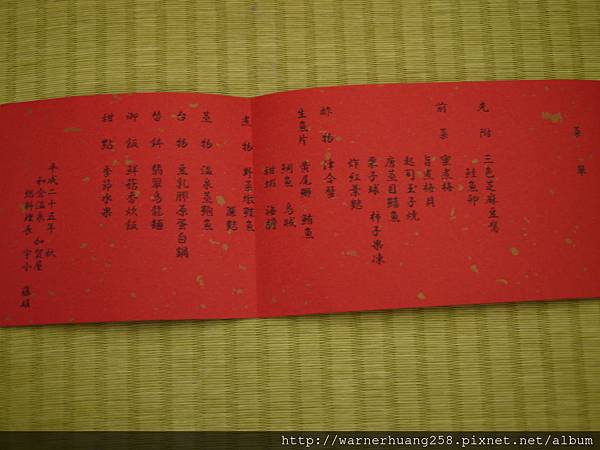 菜單
先附 三色芝麻豆腐
鮭魚卵
前菜 蜜煮梅
旨煮梅貝
起司玉子燒
唐蒸目鯖魚
栗子球 柿子果凍
炸紅葉麩
酢物 津合蟹
生魚片 黃尾鰤 鮪魚
鯛魚 烏賊
甜蝦 海膽
煮物 野菜燉鮭魚
蓮麩
蒸物 溫泉蒸鮑魚
台物 豆乳膠原蛋白鍋
替鉢 翡翠烏龍麵
御飯 鮮菇香炊飯
甜點 季節水果
平成二十五年 秋
和倉溫泉 加賀屋
總料理長 宇小 藤
http://warnerhuang258.pixnet.net/album